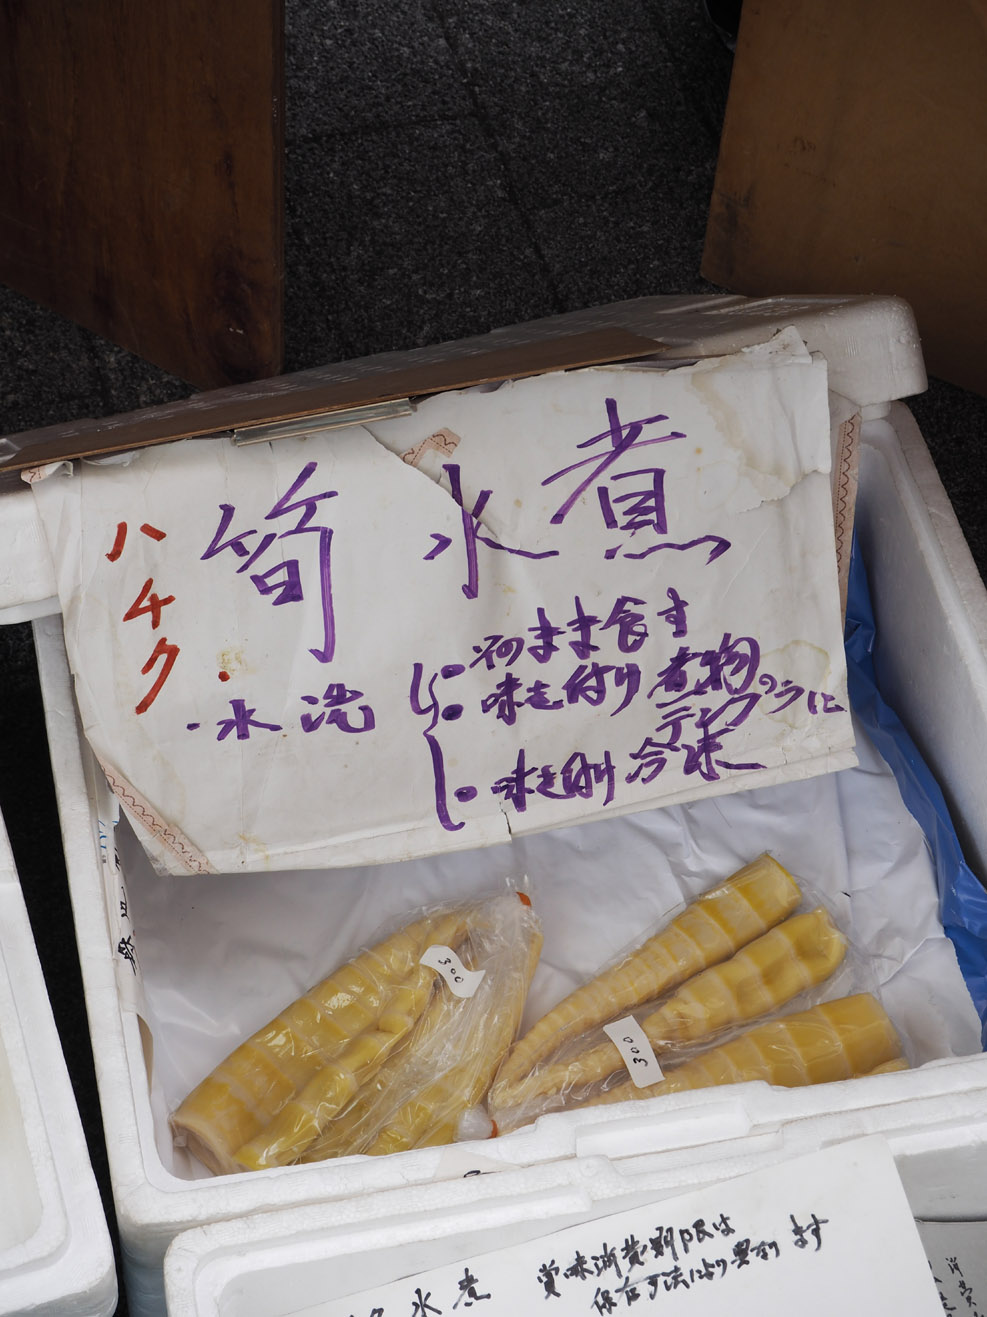 ハチク
筍 水煮
・水洗
・そのまま食す
・味を付け 煮物
テンプラに
・味を付け 冷凍
300
300
水煮
賞味消費期限は
保存方法により異ります
消費